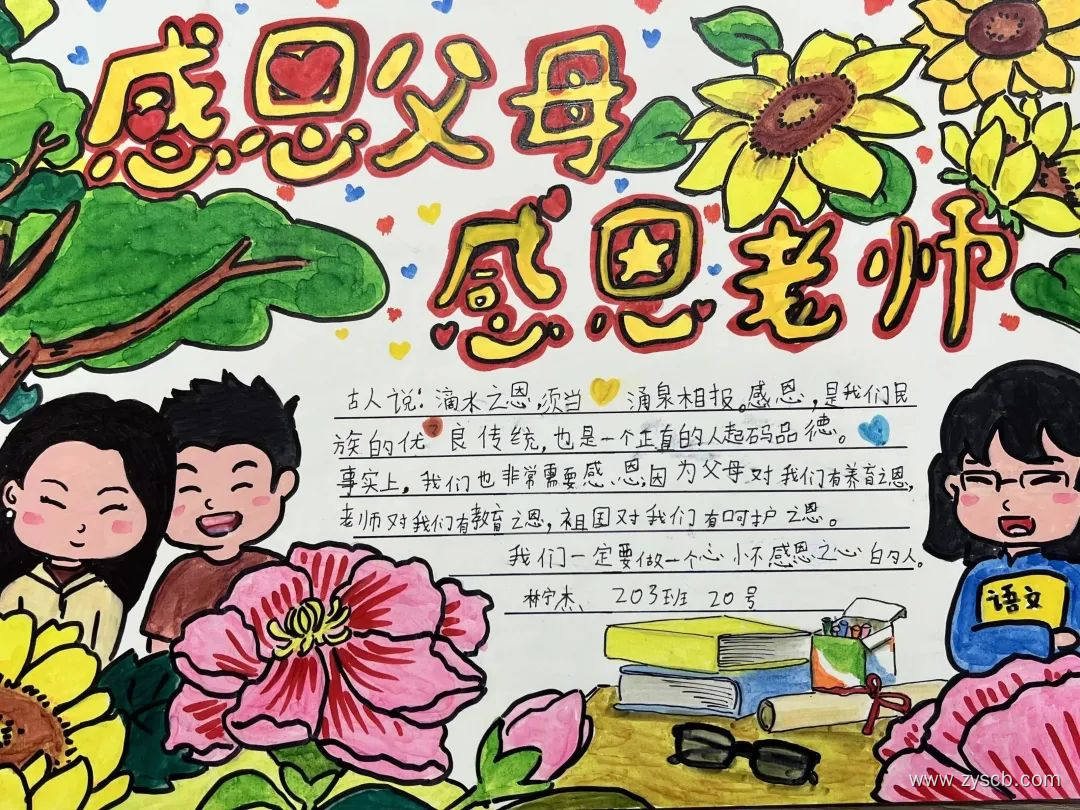 感恩父母
感恩老师
古人说：滴水之恩，须当涌泉相报。感恩，是我们民
族的优良传统，也是一个正直的人起码品德。
事实上，我们也非常需要感恩，因为父母对我们有养育之恩，
老师对我们有教育之恩，祖国对我们有呵护之恩。
我们一定要做一个心怀感恩之心的人。
林宁杰、203班 20号
语文
www.zyscb.com